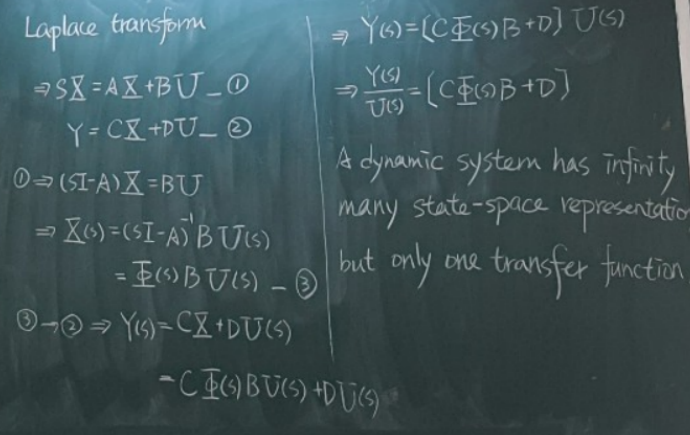 Laplace transform
⇒ SX = AX + BU — ①
Y = CX + DU — ②
① ⇒ (SI-A)X = BU
⇒ X(s) = (SI-A)⁻¹ B U(s)
= Φ(s) B U(s) — ③
③ → ② ⇒ Y(s) = CX + DU(s)
= C Φ(s) B U(s) + D U(s)
⇒ Y(s) = [CΦ(s)B + D] U(s)
⇒ Y(s)/U(s) = [CΦ(s)B + D]
A dynamic system has infinity
many state-space representatio
but only one transfer function